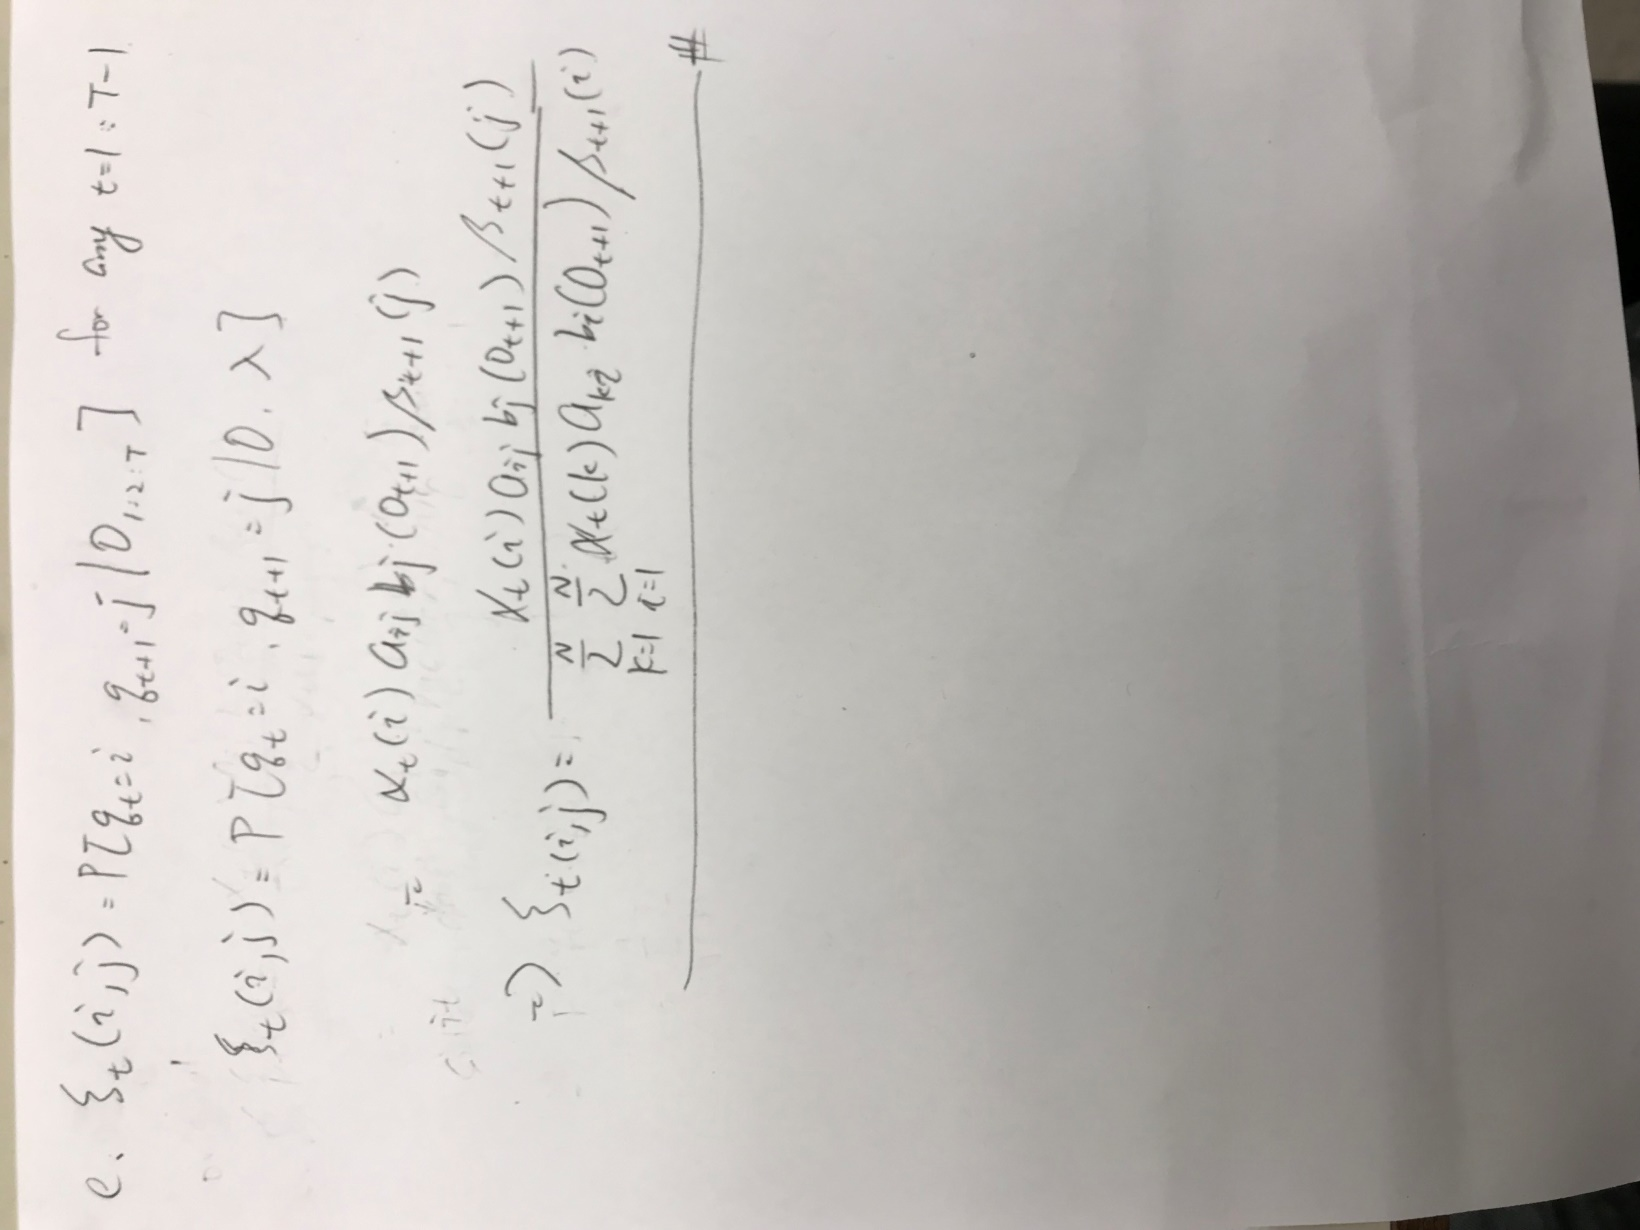 e. ξ_t(i,j) = P[q_t=i, q_{t+1}=j | O_{1:2:T}] for any t=1:T-1
ξ_t(i,j) = P[q_t=i, q_{t+1}=j | O, λ]
= α_t(i) a_{ij} b_j(O_{t+1}) β_{t+1}(j)
⇒ ξ_t(i,j) = \frac{α_t(i) a_{ij} b_j(O_{t+1}) β_{t+1}(j)}{\sum_{k=1}^{N} \sum_{i=1}^{N} α_t(k) a_{ki} b_i(O_{t+1}) β_{t+1}(i)}
#